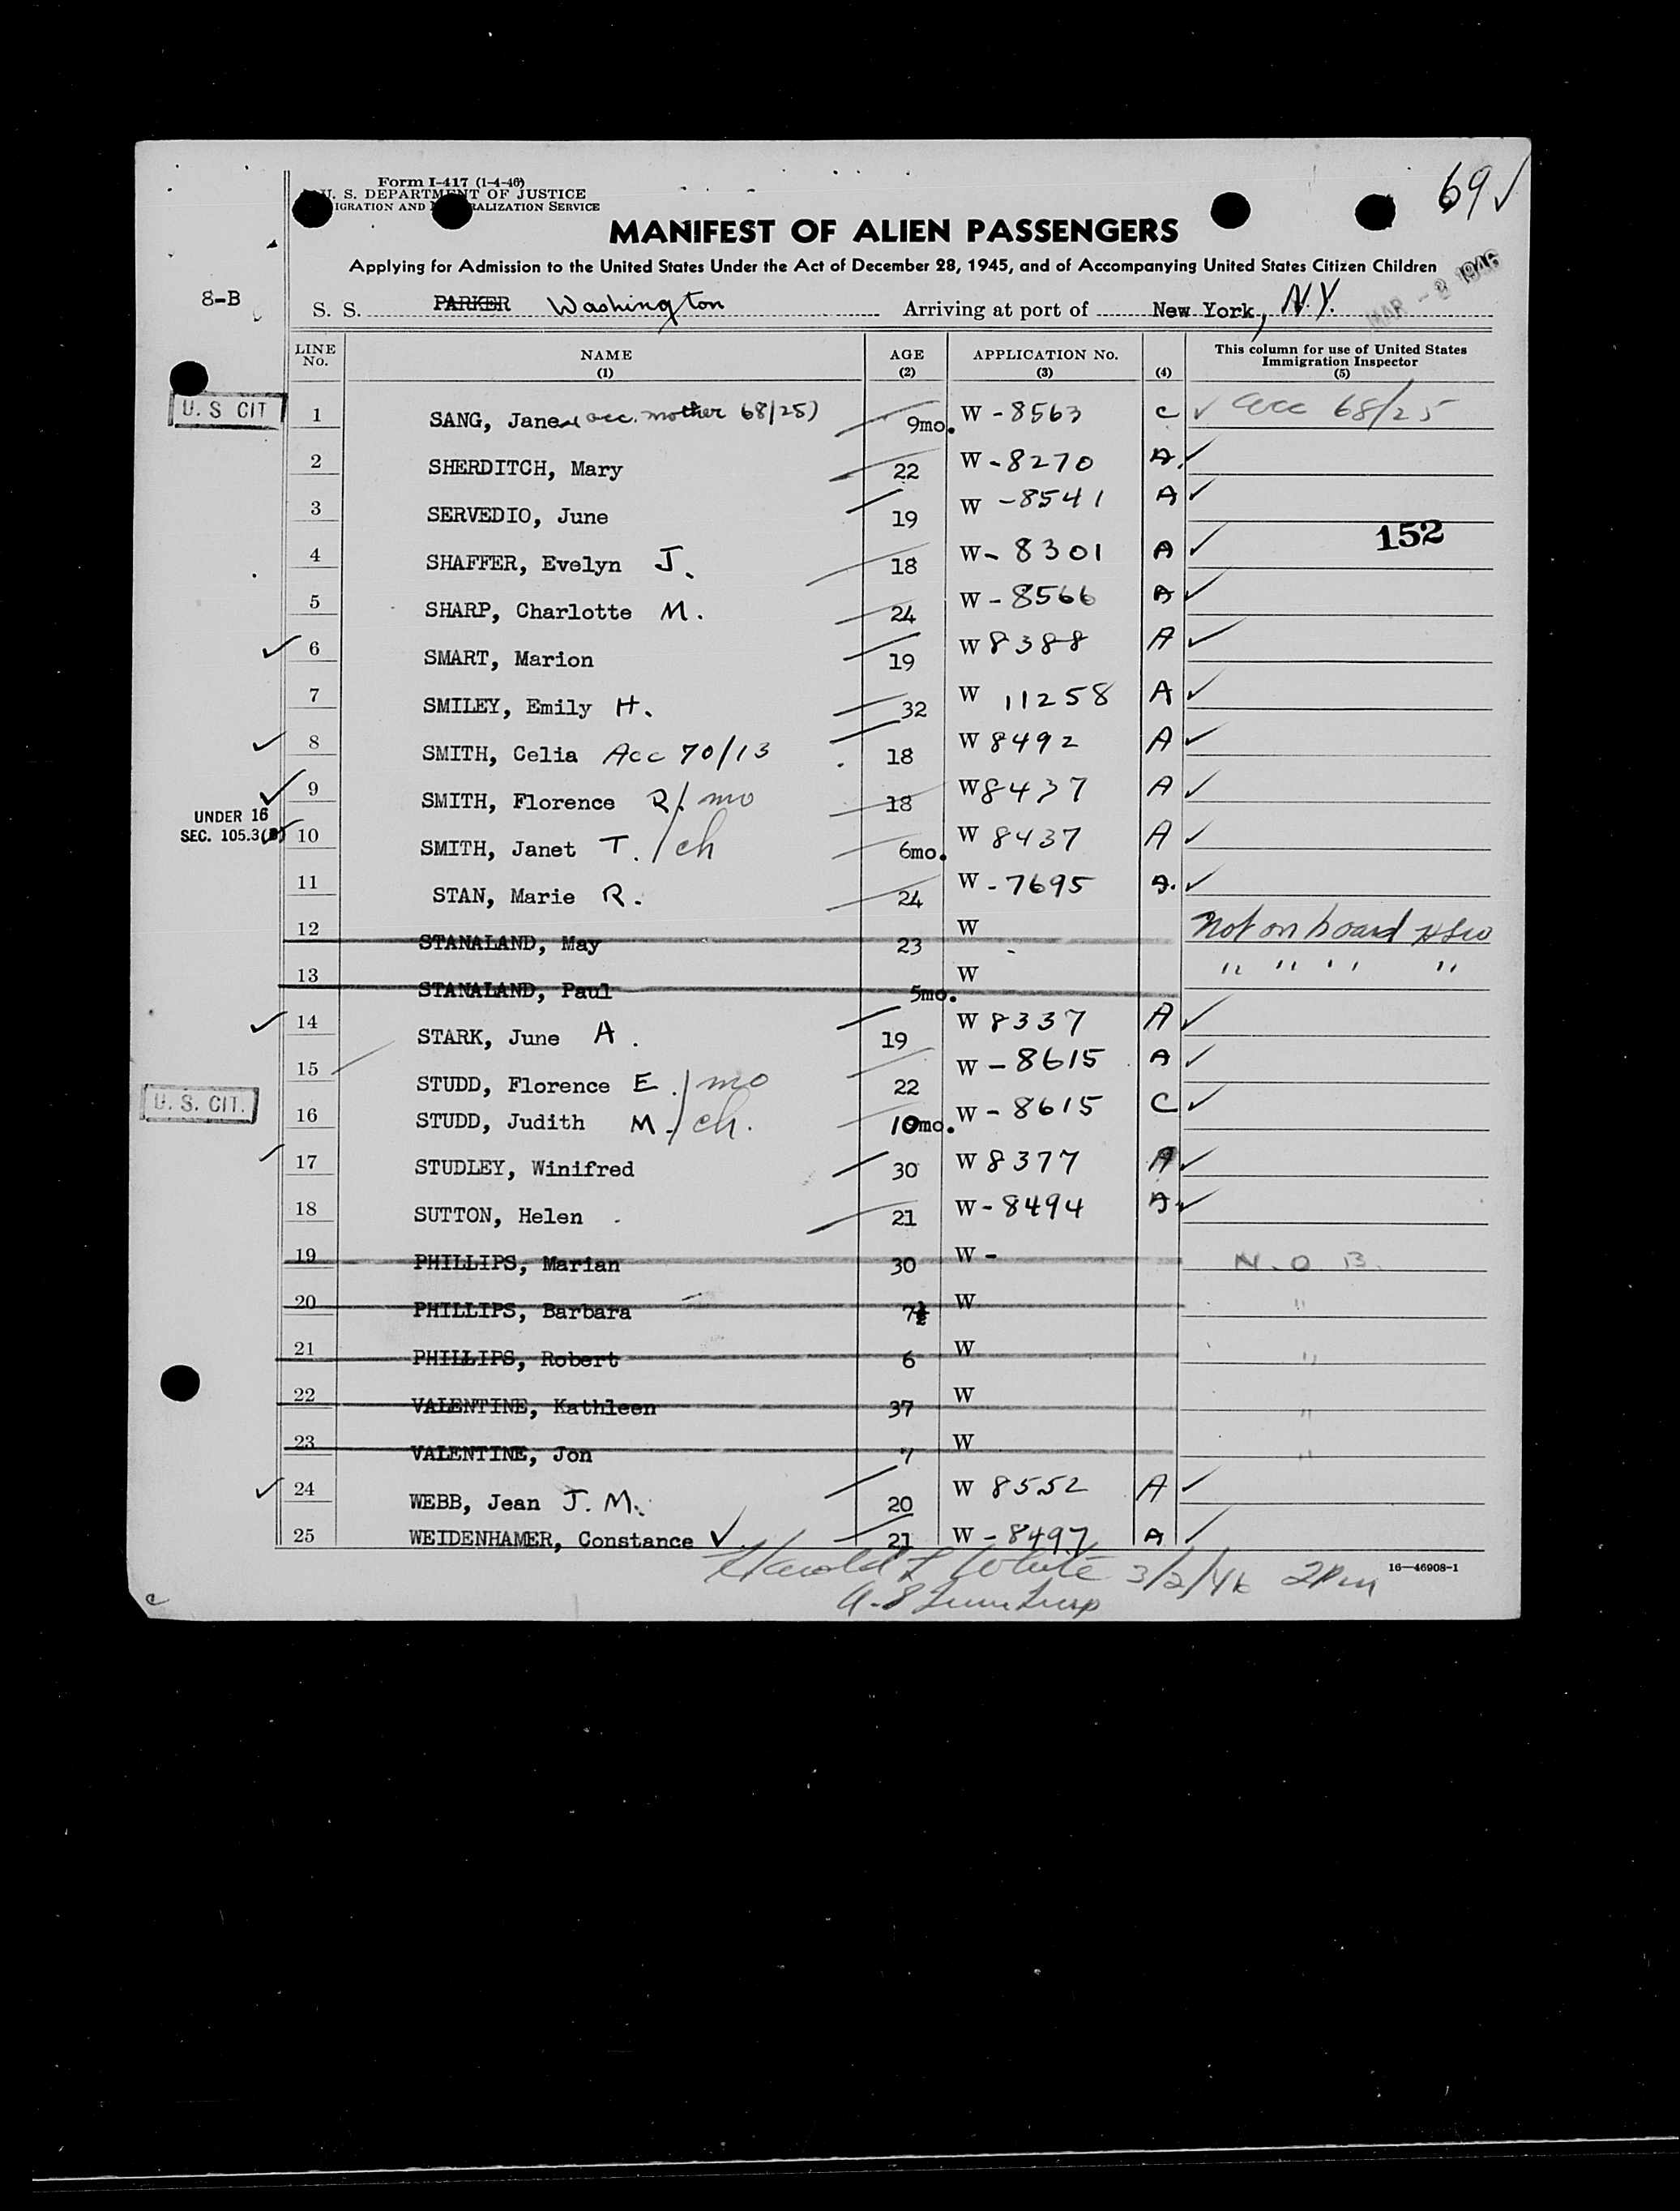 69 ✓
Form I-417 (1-4-46)
U. S. DEPARTMENT OF JUSTICE
IGRATION AND RALIZATION SERVICE
MANIFEST OF ALIEN PASSENGERS
Applying for Admission to the United States Under the Act of December 28, 1945, and of Accompanying United States Citizen Children
MAR - 2 1946
8-B
S. S. PARKER Washington Arriving at port of New York, N.Y.
LINE No. NAME (1) AGE (2) APPLICATION No. (3) (4) This column for use of United States Immigration Inspector (5)
U. S CIT 1 SANG, Jane (acc. mother 68/25) 9mo. W - 8563 C ✓ acc 68/25
2 SHERDITCH, Mary 22 W - 8270 A. ✓
3 SERVEDIO, June 19 W - 8541 A ✓
152
4 SHAFFER, Evelyn J. 18 W - 8301 A ✓
5 SHARP, Charlotte M. 24 W - 8566 A ✓
✓ 6 SMART, Marion 19 W 8388 A ✓
7 SMILEY, Emily H. 32 W 11258 A ✓
✓ 8 SMITH, Celia Acc 70/13 18 W 8492 A ✓
✓ 9 SMITH, Florence R. / mo 18 W 8437 A ✓
UNDER 16
SEC. 105.3(B) 10 SMITH, Janet T. / ch 6mo. W 8437 A ✓
11 STAN, Marie R. 24 W - 7695 A. ✓
12 STANALAND, May 23 W Not on board
13 STANALAND, Paul 5mo. W " " " "
✓ 14 STARK, June A. 19 W 8337 A ✓
15 STUDD, Florence E. / mo 22 W - 8615 A ✓
U. S. CIT. 16 STUDD, Judith M. / ch. 10mo. W - 8615 C ✓
✓ 17 STUDLEY, Winifred 30 W 8377 A ✓
18 SUTTON, Helen 21 W - 8494 A ✓
19 PHILLIPS, Marian 30 W - N. O B.
20 PHILLIPS, Barbara 7½ W "
21 PHILLIPS, Robert 6 W "
22 VALENTINE, Kathleen 37 W "
23 VALENTINE, Jon 7 W "
✓ 24 WEBB, Jean J. M. 20 W 8552 A ✓
25 WEIDENHAMER, Constance ✓ 21 W - 8497 A ✓
Harold L White 3/2/46 2 Pm
16—46908-1
c